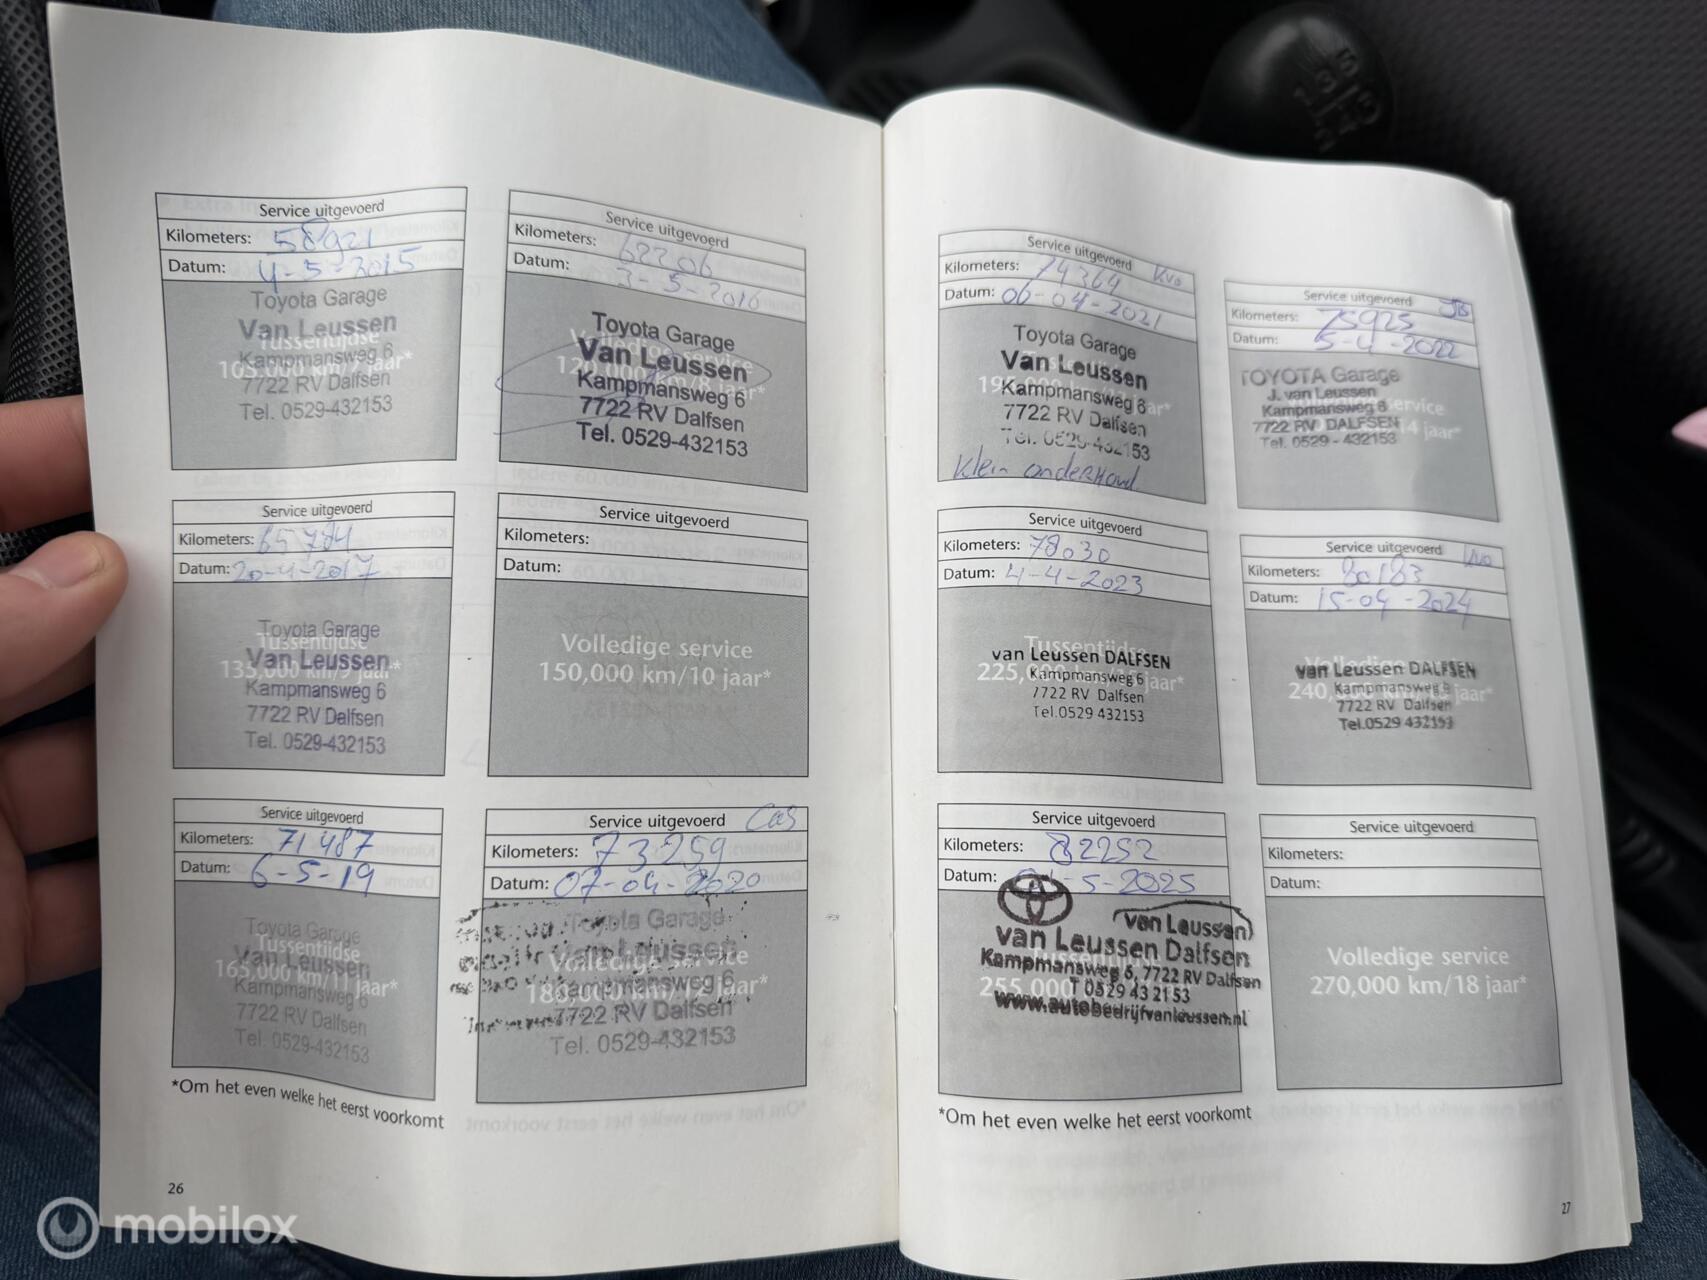 Service uitgevoerd
Kilometers: 58921
Datum: 4-5-2015
Toyota Garage
Van Leussen
Tussentijdse
Kampmansweg 6
105,000 km/7 jaar*
7722 RV Dalfsen
Tel. 0529-432153
Service uitgevoerd
Kilometers: 62206
Datum: 3-5-2016
Toyota Garage
Volledige service
Van Leussen
Kampmansweg 6
7722 RV Dalfsen
Tel. 0529-432153
Service uitgevoerd
Kilometers: 65784
Datum: 20-4-2017
Toyota Garage
Tussentijdse
Van Leussen
135,000 km/9 jaar*
Kampmansweg 6
7722 RV Dalfsen
Tel. 0529-432153
Service uitgevoerd
Kilometers:
Datum:
Volledige service
150,000 km/10 jaar*
Service uitgevoerd
Kilometers: 71487
Datum: 6-5-19
Toyota Garage
Tussentijdse
Van Leussen
165,000 km/11 jaar*
Kampmansweg 6
7722 RV Dalfsen
Tel. 0529-432153
Service uitgevoerd
Kilometers: 73259
Datum: 07-04-2020
Toyota Garage
Van Leussen
Volledige service
Kampmansweg 6
7722 RV Dalfsen
Tel. 0529-432153
*Om het even welke het eerst voorkomt
26
Service uitgevoerd
Kilometers: 74364 KVO
Datum: 06-04-2021
Toyota Garage
Van Leussen
Kampmansweg 6
7722 RV Dalfsen
Tel. 0529-432153
Klein onderhoud
Service uitgevoerd JB
Kilometers: 75925
Datum: 5-4-2022
TOYOTA Garage
J. van Leussen
Kampmansweg 6
7722 RV DALFSEN
Tel. 0529 - 432153
Service uitgevoerd
Kilometers: 78030
Datum: 4-4-2023
Tussentijdse
van Leussen DALFSEN
Kampmansweg 6
7722 RV Dalfsen
Tel.0529 432153
Service uitgevoerd KVO
Kilometers: 80183
Datum: 15-04-2024
van Leussen DALFSEN
Kampmansweg 6
7722 RV Dalfsen
Tel.0529 432153
Service uitgevoerd
Kilometers: 82252
Datum: -5-2025
van Leussen
van Leussen Dalfsen
Kampmansweg 6, 7722 RV Dalfsen
T 0529 43 21 53
www.autobedrijfvanleussen.nl
Service uitgevoerd
Kilometers:
Datum:
Volledige service
270,000 km/18 jaar*
*Om het even welke het eerst voorkomt
27
mobilox